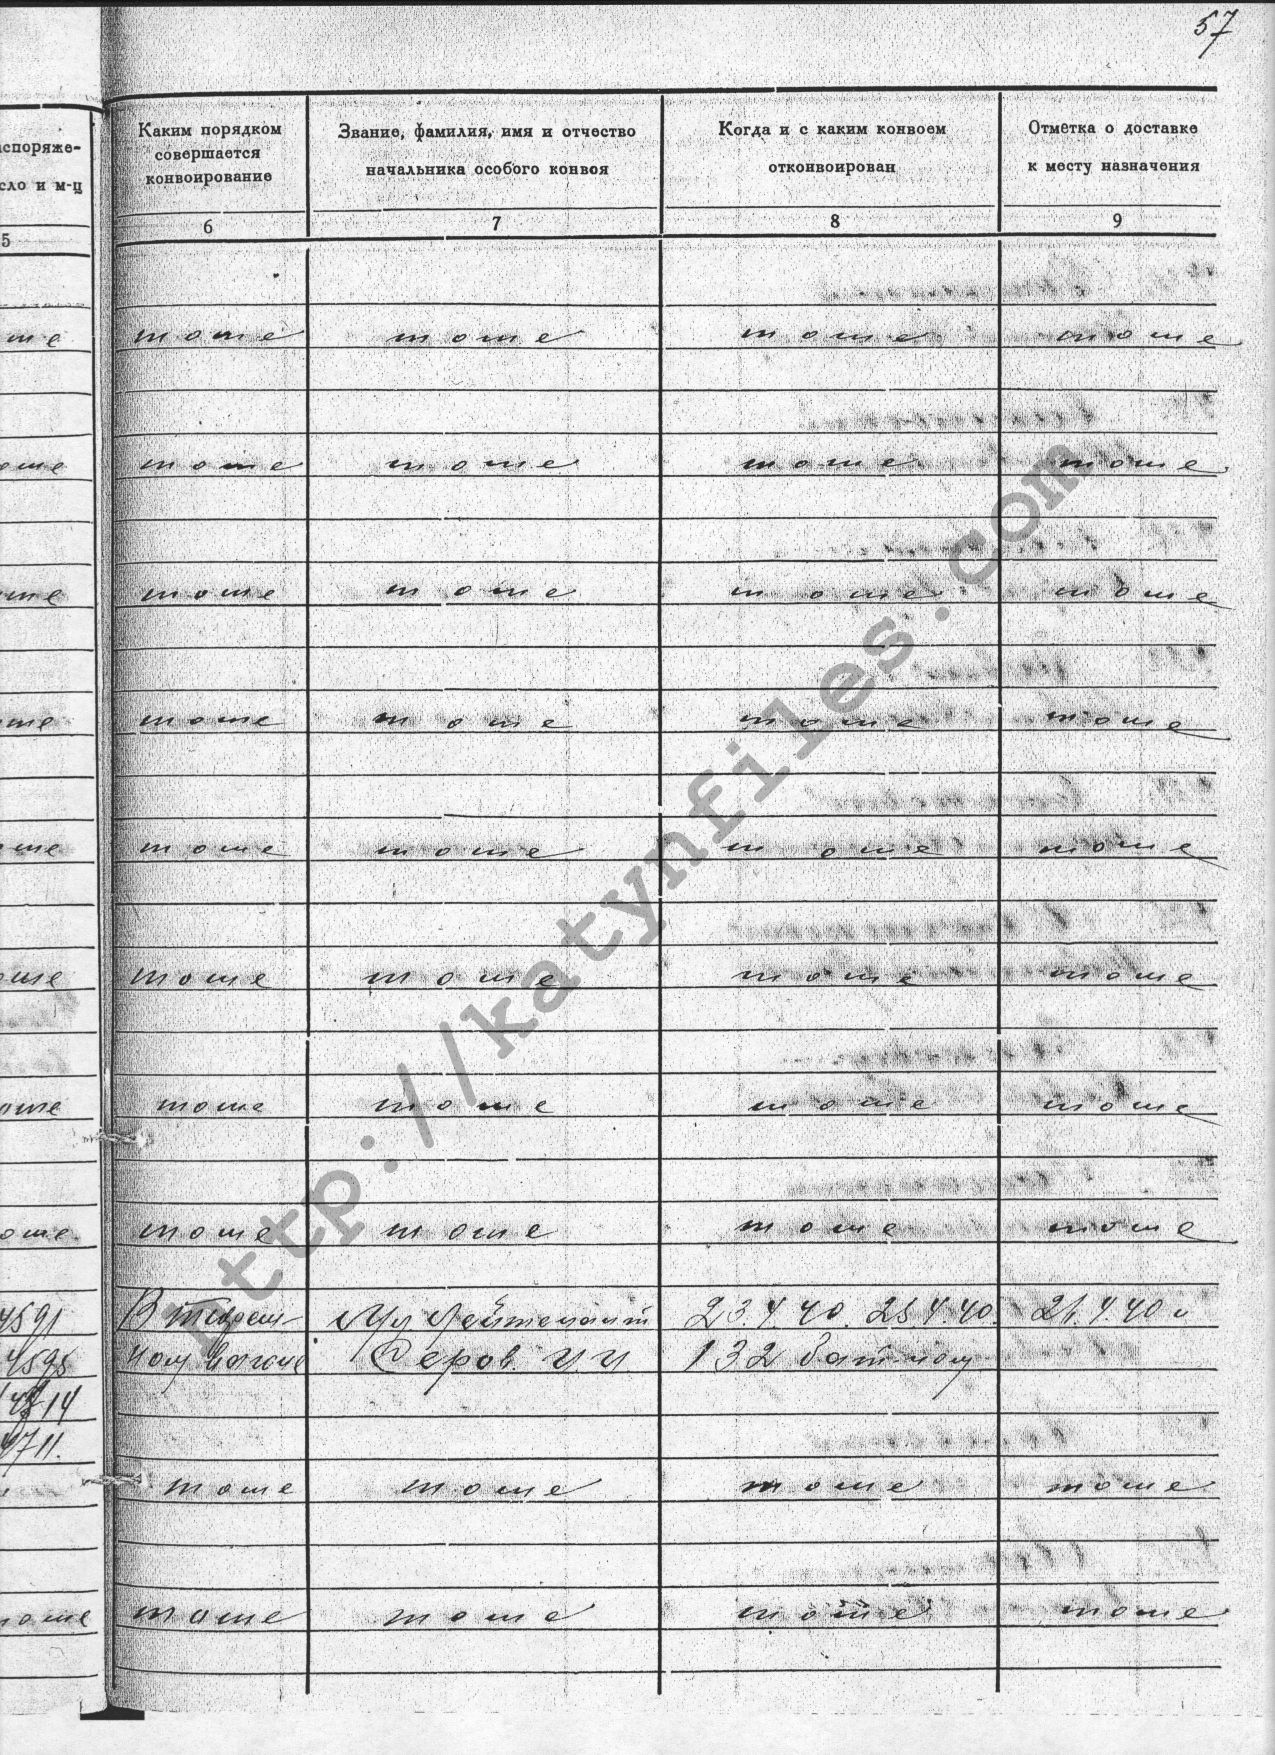 57
аспоряже-
сло и м-ц
5
Каким порядком
совершается
конвоирование
6
Звание, фамилия, имя и отчество
начальника особого конвоя
7
Когда и с каким конвоем
отконвоирован
8
Отметка о доставке
к месту назначения
9
ше тоже тоже тоже тоже
оше тоже тоже тоже тоже
оше тоже тоже тоже тоже
оше тоже тоже тоже тоже
оше тоже тоже тоже тоже
оше тоже тоже тоже тоже
оше тоже тоже тоже тоже
оше тоже тоже тоже тоже
4591 В тюрем- Мл Лейтенант 23.4.40. 25.4.40. 21.4.40 г
4595 ном вагоне Серов И И 132 бат-ном
4714
4711.
тоже тоже тоже тоже
тоже тоже тоже тоже тоже
http://katynfiles.com